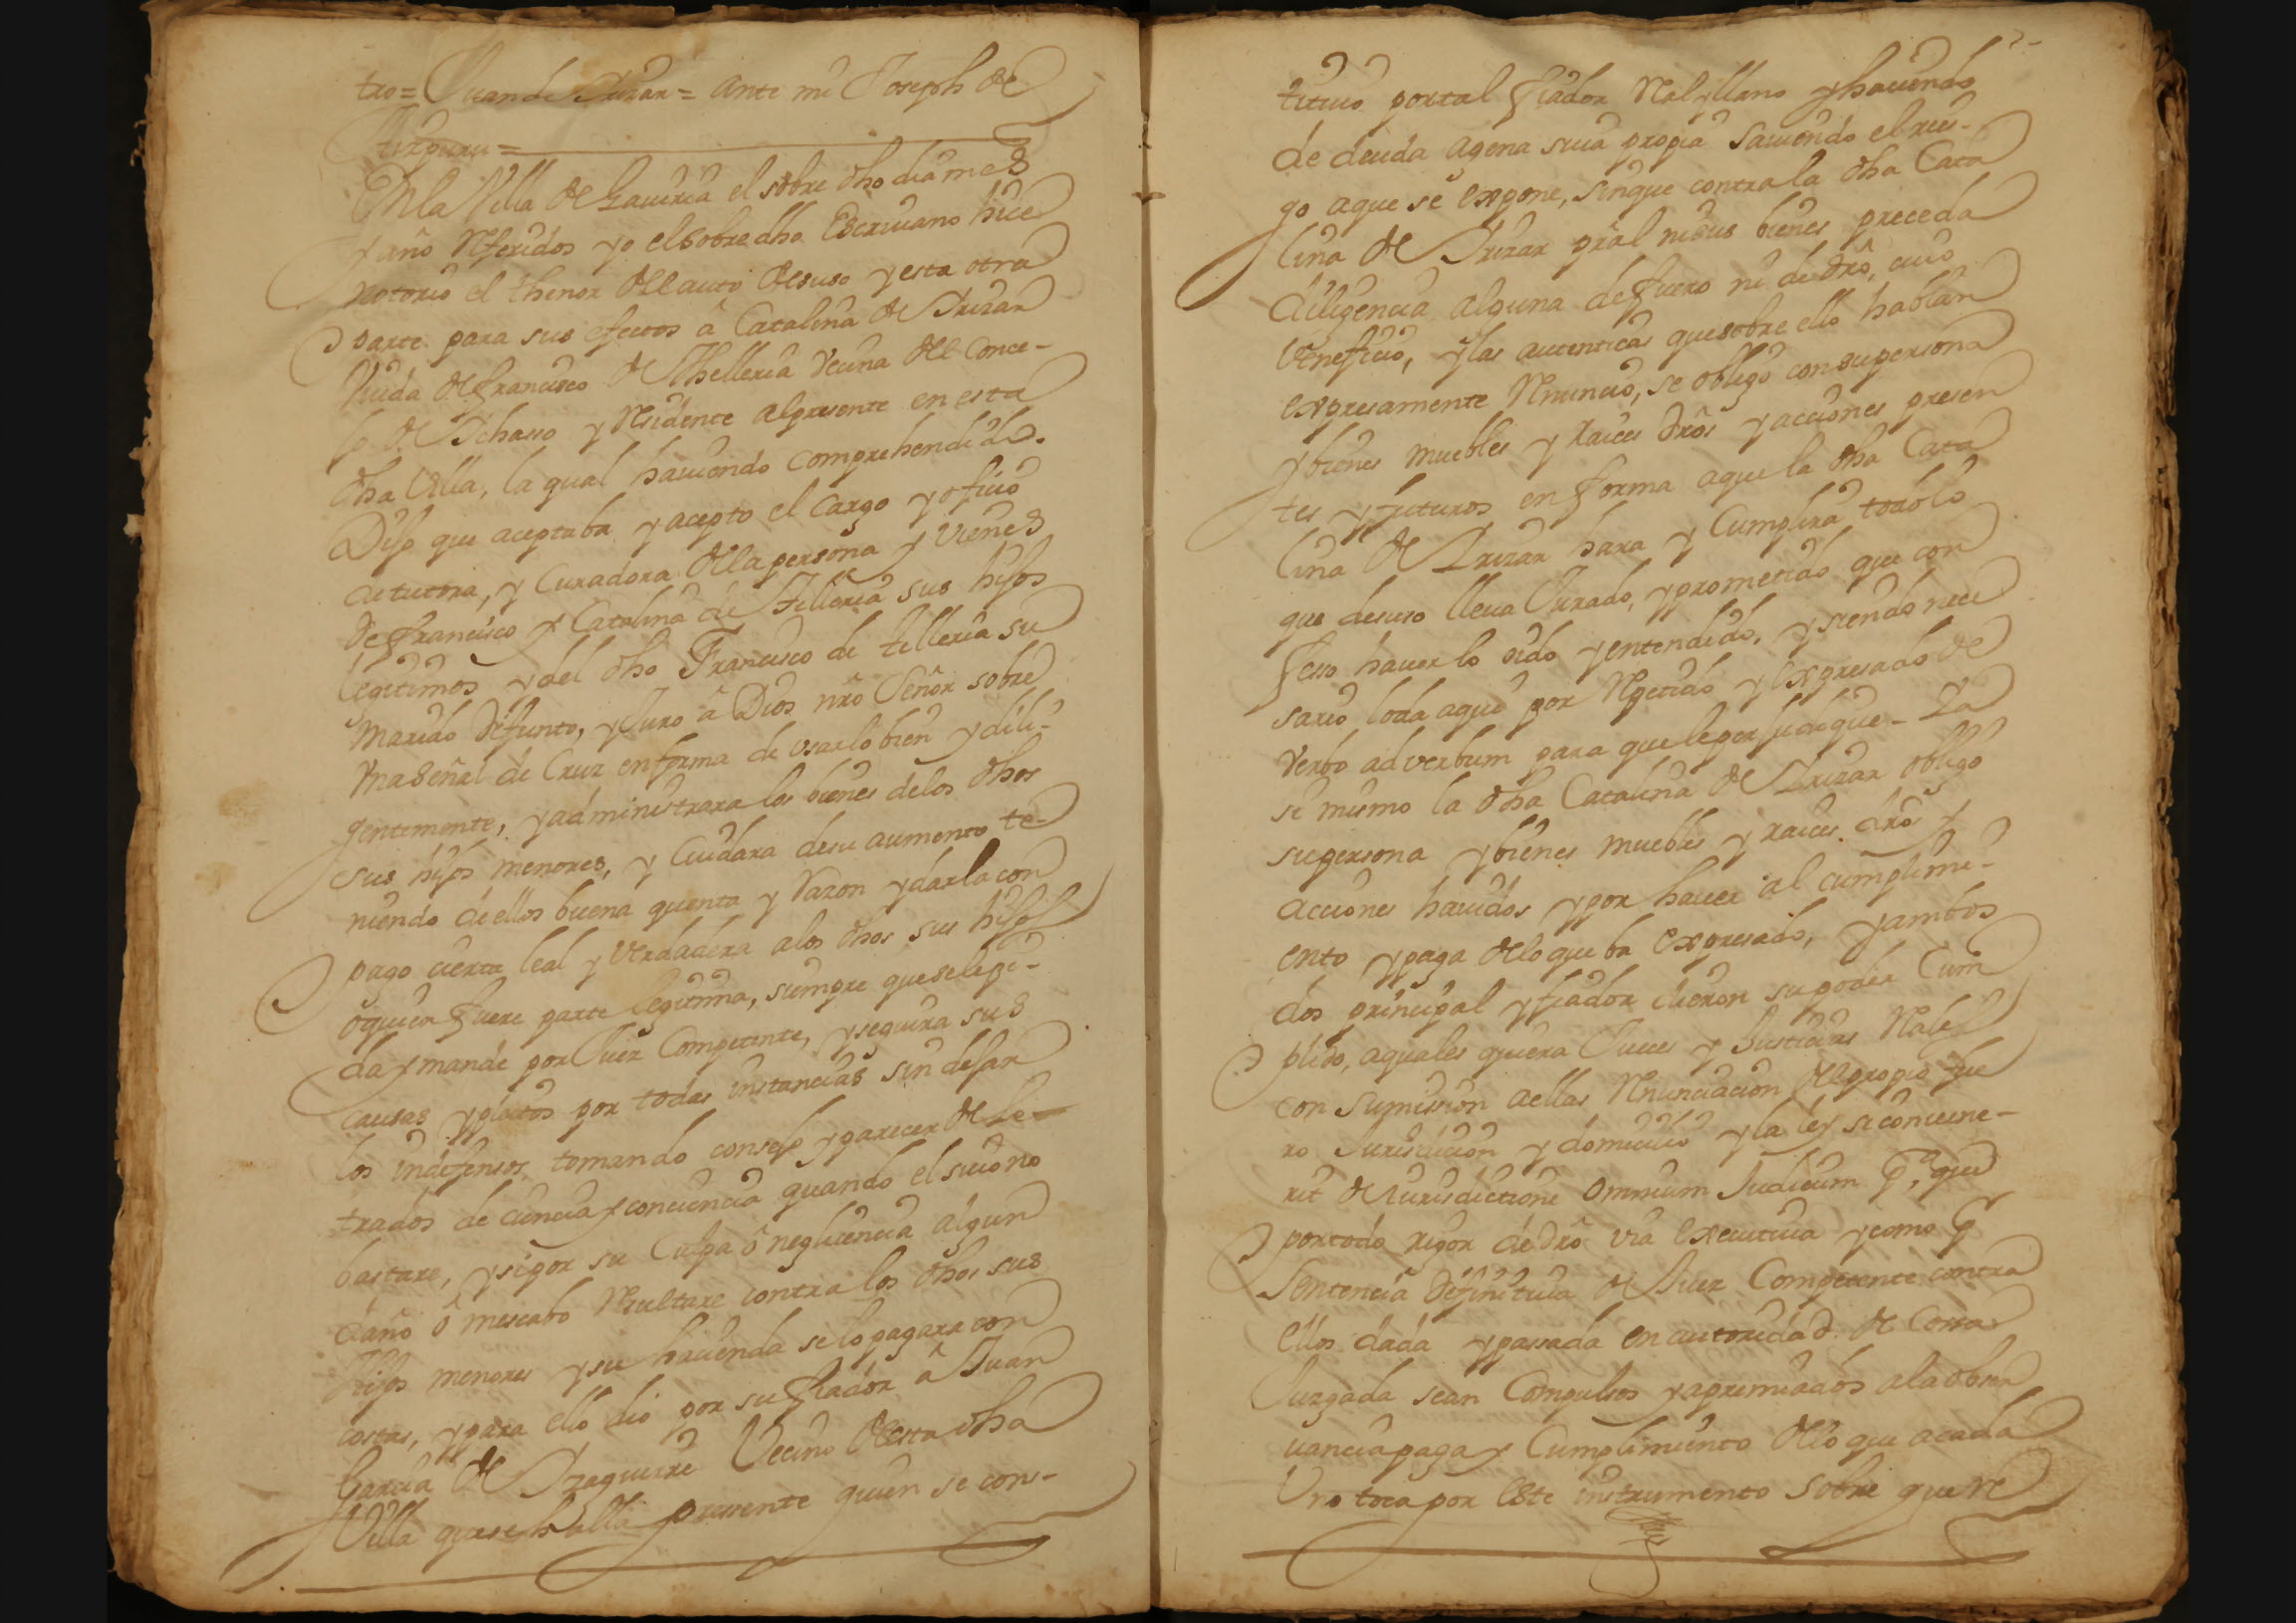 tro= Juan de Irizar= ante mi Joseph de
Aizpuru=
En la Villa de Gaviria el sobre dho dia mes
y año Referidos yo el sobre dho Escrivano hice
notorio el thenor del auto desuso y esta otra
parte para sus efectos â Catalina de Irizar
Viuda de Francisco de Thelleria Vecina del Conce-
jo de Ichasso y Residente alpresente en esta
dha Villa, la qual haviendo comprehendido.
Dijo que aceptaba y acepto el cargo y oficio
de tutora, y Curadora dela persona y vienes
de Francisco y Catalina de Telleria sus hijos
legitimos y del dho Francisco de Telleria su
marido difunto, y Juro â Dios nrô Señor sobre
Una señal de Cruz en forma de usarlo bien y dili-
gentemente, y administrara los bienes delos dhos
sus hijos menores, y Cuidara desu aumento te-
niendo de ellos buena quenta y Razon y darla con
pago cierta leal y Verdadera alos dhos sus hijos
ô quien fuere parte legitima, siempre que se le pi-
da y mande por Juez Competente, y seguira sus
causas y pleitos por todas instancias sin dejar
los indefensos tomando consejo y parecer de Le-
trados de ciencia y conciencia quando el suio no
bastare, y si por su Culpa ô neglicencia algun
daño ô mescabo Resultare contra los dhos sus
Hijos menores y su hacienda se lo pagara con
costas, y para ello dio por su fiador â Juan
Garcia de Izaguirre Vecino desta dha
Villa que se halla presente quien se cons-
tituio por tal fiador Real y llano y haciendo
de deuda agena suia propia saviendo el ries-
go a que se expone, sin que contra la dha Cata
lina de Irizar pral ni sus bienes preceda
diligencia alguna de fuero ni de drô, cuio
Veneficio, y las autenticas que sobre ello hablan
expresamente Renuncio, se obligo con su persona
y bienes muebles y raices drôs y acciones presen
tes y futuros en forma a que la dha Cata
lina de Irizar hara y Cumplira todo lo
que desuso lleva Jurado, y prometido que con
fesso haverlo oido y entendido, y siendo nece
sario lo da aqui por Repetido y expresado de
Verbo ad verbum para que le perjudique- Ya
si mismo la dha Catalina de Irizar obligo
su persona y bienes muebles y raices drôs y
acciones havidos y por haver al cumplimi-
ento y paga delo que ba expresado, y ambos
dos principal y fiador dieron su poder Cum
plido, aquales quiera Jueces y Justicias Reales
con sumission aellas Renunciacion del propio fue
ro Jurisdicion y domicilio y la ley si convene-
rit de Jurisdictione omnium Judicum pª. que
por todo rigor de drô via executiva y como pr
Sentencia definitiva de Juez Competente contra
ellos dada y passada en autoridad de Cossa
Juzgada sean Compulsos y apremiados ala obser
vancia paga y Cumplimiento delo que acada
Uno toca por este instrumento sobre que re